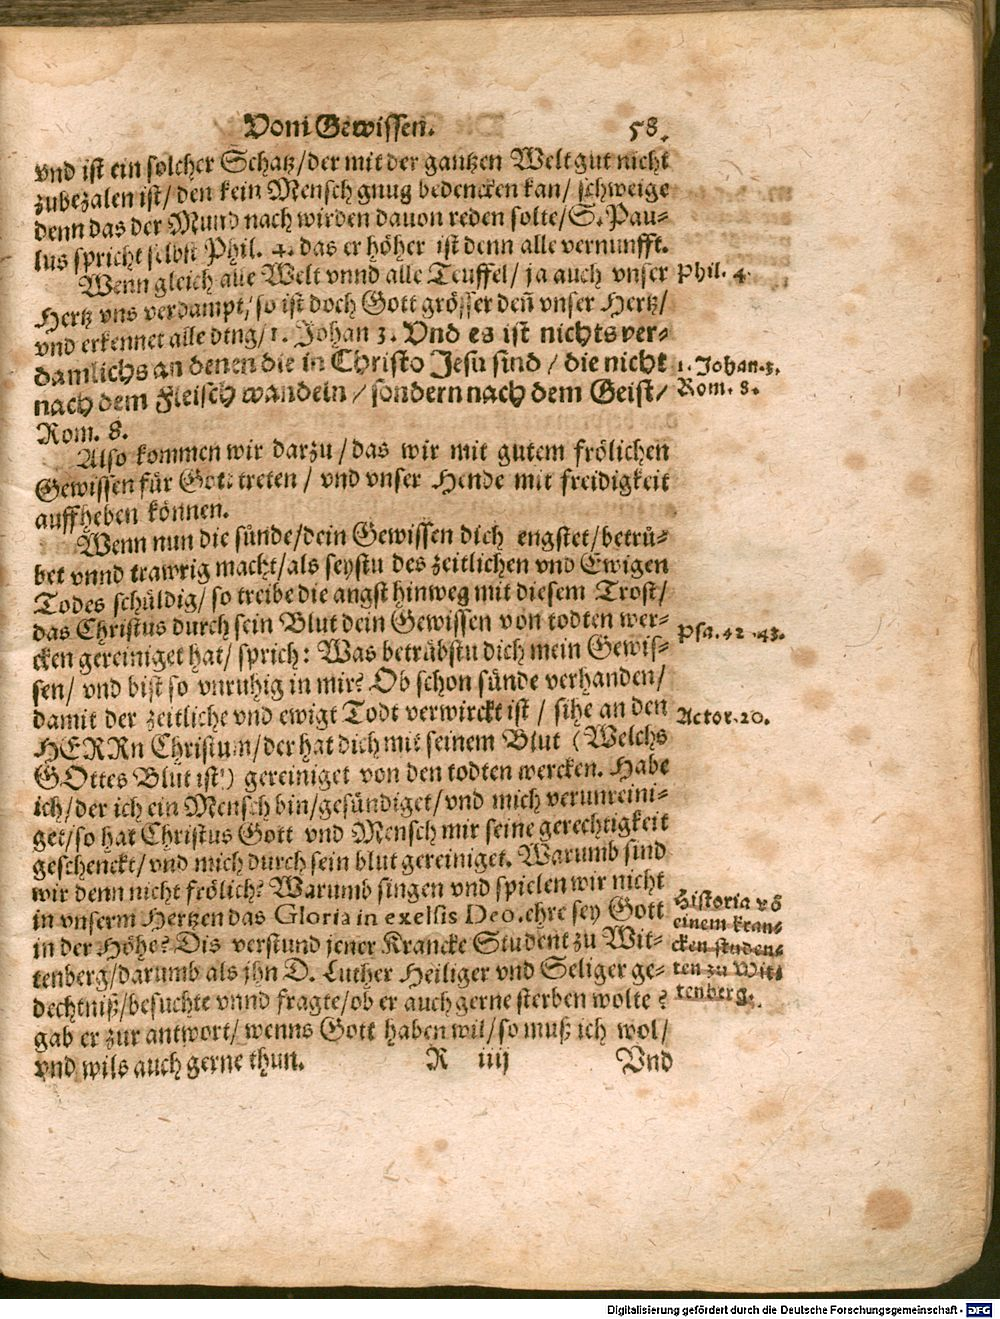 Vom Gewissen. 58.
vnd ist ein solcher Schatz/der mit der gantzen Welt gut nicht
zubezalen ist/ den kein Mensch gnug bedencken kan/ schweige
denn das der Mund nach wirden dauon reden solte/S. Pau-
lus spricht selbst Phil. 4. das er höher ist denn alle vernunfft.
Wenn gleich alle Welt vnnd alle Teuffel/ ja auch vnser
Phil. 4.
Hertz vns verdampt/ so ist doch Gott grösser deñ vnser Hertz/
vnd erkennet alle ding/1. Johan 3. Vnd es ist nichts ver-
damlichs an denen die in Christo Jesu sind / die nicht
1. Johan.3.
nach dem Fleisch wandeln / sondern nach dem Geist/
Rom. 8.
Rom. 8.
Also kommen wir darzu /das wir mit gutem frölichen
Gewissen für Gott treten / vnd vnser Hende mit freidigkeit
auffheben können.
Wenn nun die sünde/dein Gewissen dich engstet/betrü-
bet vnnd trawrig macht/als seystu des zeitlichen vnd Ewigen
Todes schüldig/ so treibe die angst hinweg mit diesem Trost/
das Christus durch sein Blut dein Gewissen von todten wer-
Psa. 42.43.
cken gereiniget hat/ sprich: Was betrübstu dich mein Gewis-
sen/ vnd bist so vnruhig in mir? Ob schon sünde verhanden/
damit der zeitliche vnd ewigt Todt verwirckt ist / sihe an den
Actor.20.
HERRn Christum/der hat dich mit seinem Blut (Welchs
GOttes Blut ist) gereiniget von den todten wercken. Habe
ich/der ich ein Mensch bin/gesündiget/vnd mich verunreini-
get/so hat Christus Gott vnd Mensch mir seine gerechtigkeit
geschenckt/vnd mich durch sein blut gereiniget. Warumb sind
wir denn nicht frölich? Warumb singen vnd spielen wir nicht
in vnserm Hertzen das Gloria in exelsis Deo.ehre sey Gott
in der Höhe? Dis verstund jener Krancke Student zu Wit-
tenberg/darumb als jhn D. Luther Heiliger vnd Seliger ge-
dechtniß/besuchte vnnd fragte/ob er auch gerne sterben wolte?
gab er zur antwort/ wenns Gott haben wil/so muß ich wol/
vnd wils auch gerne thun.
Historia võ
einem kran-
cken studen-
ten zu Wit-
tenberg.
R iiij Vnd
Digitalisierung gefördert durch die Deutsche Forschungsgemeinschaft - DFG